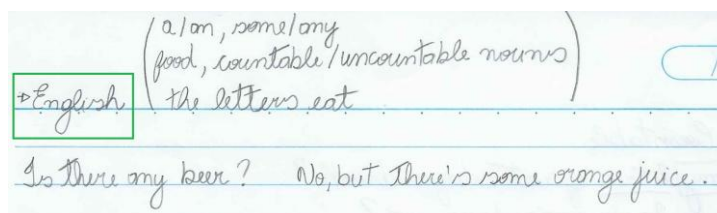 (a/an, some/any
food, countable/uncountable nouns)
→English the letters eat
Is there any beer? No, but there's some orange juice.